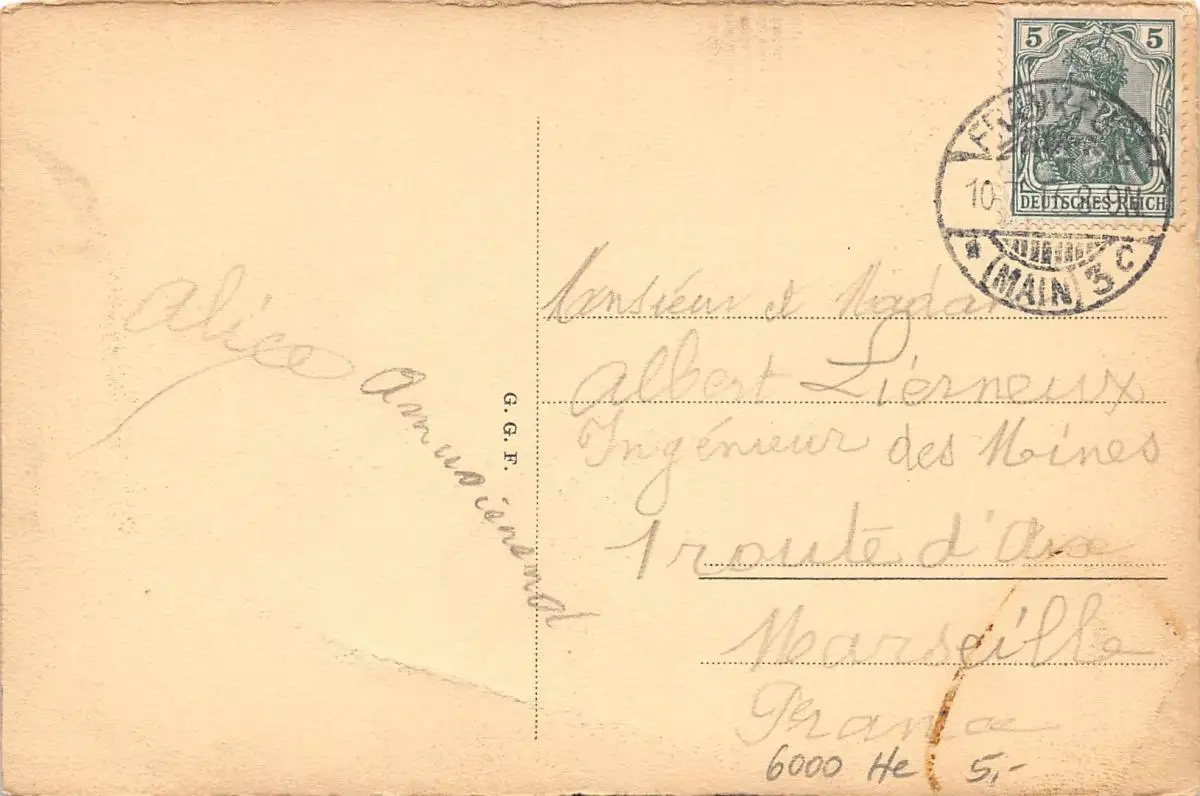 5 5
DEUTSCHES REICH
FRANKFU
10 8-9N.
* (MAIN) 3 C
Alice
G. G. F.
Monsieur et Madame
Albert Lierneux
Ingénieur des Mines
1 route d'Aix
Marseille
France
6000 He 5,-